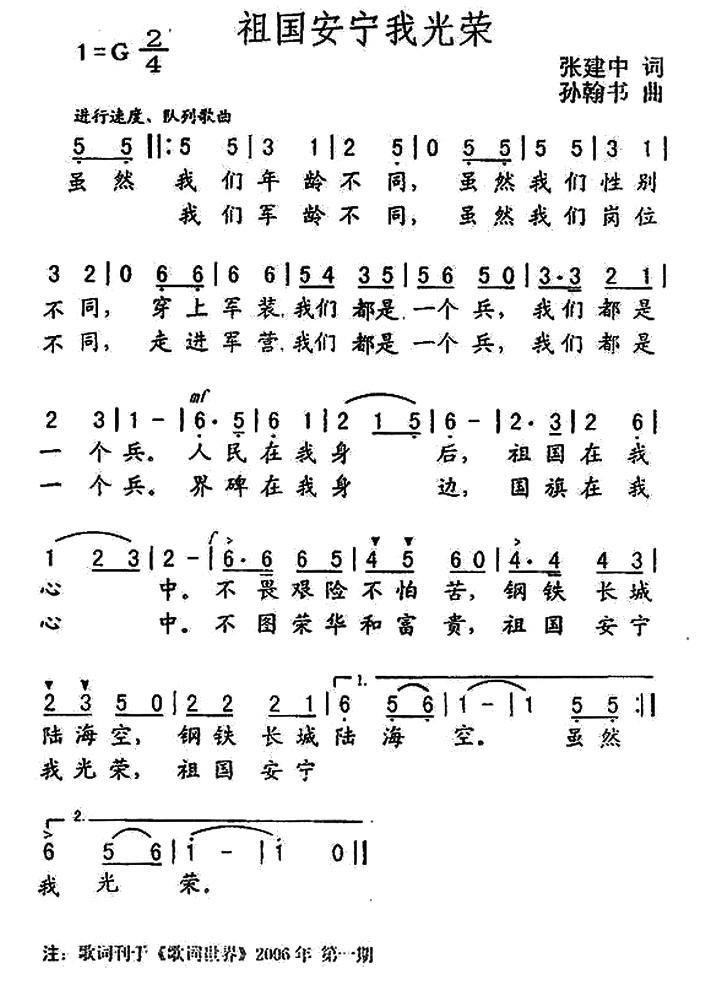 祖国安宁我光荣
1=G 2/4
张建中 词
孙翰书 曲
进行速度、队列歌曲
5 5 ‖: 5 5 | 3 1 | 2 5 | 0 5 5 | 5 5 | 3 1 |
虽然 我们年龄不同, 虽然我们性别
我们军龄不同, 虽然我们岗位
3 2 | 0 6 6 | 6 6 | 5 4 3 5 | 5 6 5 0 | 3·3 2 1 |
不同, 穿上军装,我们都是一个兵, 我们都是
不同, 走进军营,我们都是一个兵, 我们都是
mf
2 3 | 1 - | 6· 5 | 6 1 | 2 1 5 | 6 - | 2· 3 | 2 6 |
一个兵。人民在我身 后, 祖国在我
一个兵。界碑在我身 边, 国旗在我
f
1 2 3 | 2 - | 6·6 6 5 | 4 5 6 0 | 4·4 4 3 |
心 中。不畏艰险不怕苦, 钢铁长城
心 中。不图荣华和富贵, 祖国安宁
1.
2 3 5 0 | 2 2 2 1 | 6 5 6 | 1 - | 1 5 5 :‖
陆海空, 钢铁长城陆海空。 虽然
我光荣, 祖国安宁
2.
6 5 6 | i - | i 0 ‖
我光荣。
注: 歌词刊于《歌词世界》2006年 第一期